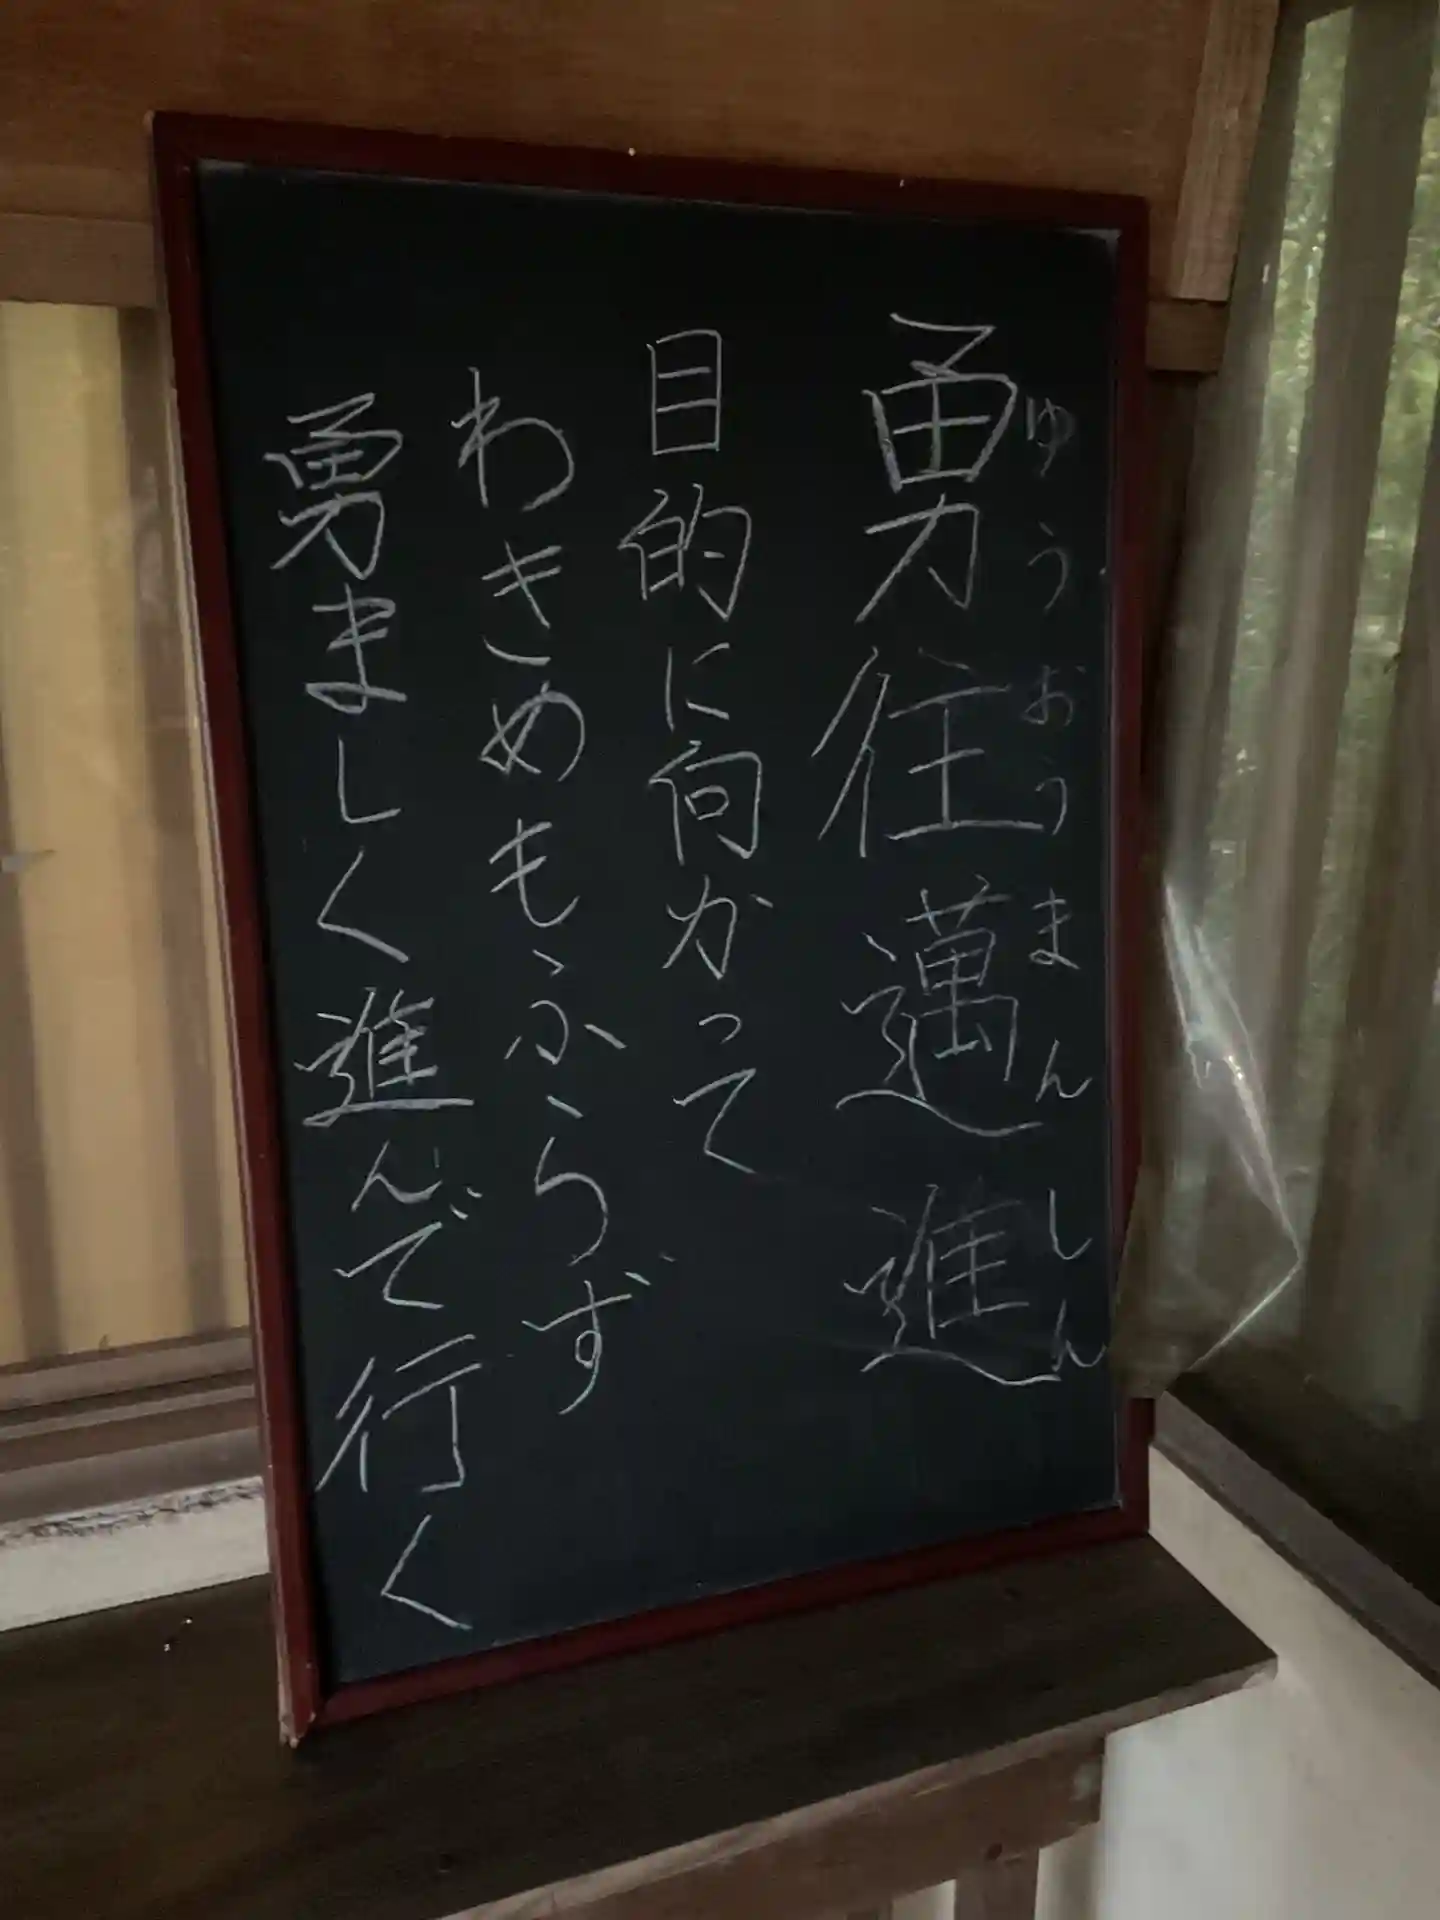 勇往邁進
ゆうおうまんしん
目的に向かって
わきめもふらず
勇ましく進んで行く